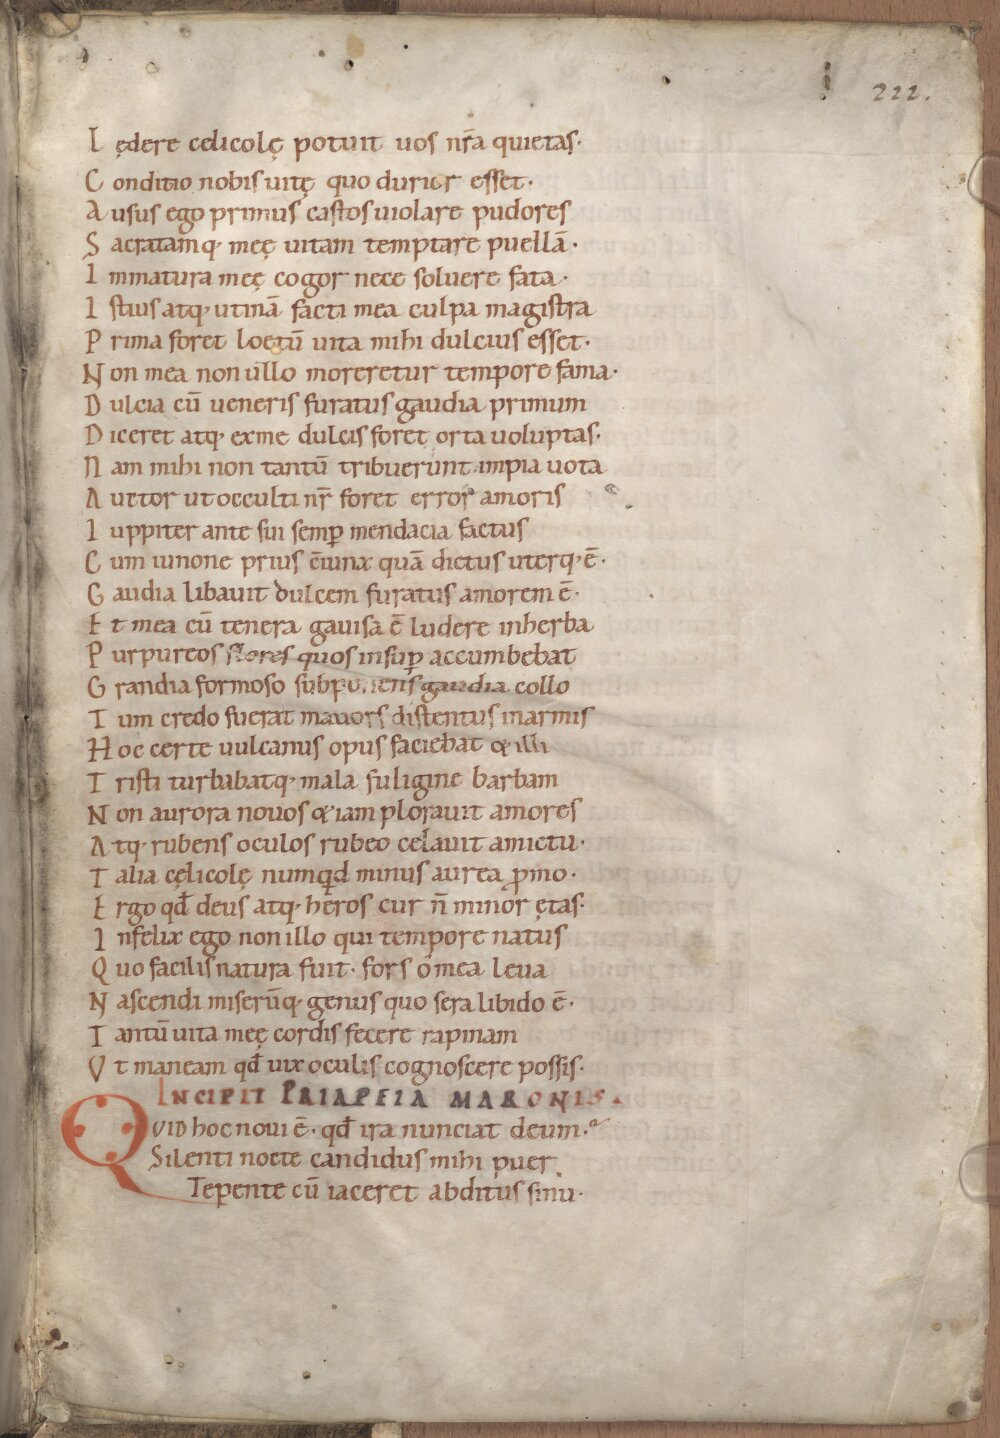 222.
Lędere celicolę potuit uos nr̄a quietas·
Conditio nobis uitę quo durior esset·
Ausus ego primus castos uiolare pudores
Sacratamq· meę uitam temptare puellā·
Immatura meę cogor nece soluere fata·
Istius atq· utinā facti mea culpa magistra
Prima foret loetū uita mihi dulcius esset·
Non mea non ullo moreretur tempore fama·
Dulcia cū ueneris furatus gaudia primum
Diceret atq· exme dulcis foret orta uoluptas·
Nam mihi non tantū tribuerunt impia uota
Auctor ut occulti nr̄ foret error amoris
Iuppiter ante sui semp̄ mendacia factus
Cum iunone prius c̄iunx quā dictus uterq· ē·
Gaudia libauit dulcem furatus amorem ē·
Et mea cū tenera gauisa ē ludere inherba
Purpureos flores quos insup̄ accumbebat
Grandia formoso subponens gaudia collo
Tum credo fuerat mauors distentus inarmis
Hoc certe uulcanus opus faciebat & illi
Tristi turbabatq· mala fuligine barbam
Non aurora nouos &iam plorauit amores
Atq· rubens oculos rubeo celauit amictu·
Talia cęlicolę numqd minus aurea p̄mo·
Ergo qđ deus atq· heros cur n̄ minor ętas·
Infelix ego non illo qui tempore natus
Quo facilis natura fuit· fors ó mea leua
Nascendi miserūq· genus quo sera libido ē·
Tantū uita meę cordis fecere rapinam
Vt maneam qđ uix oculis cognoscere possis·
INCIPIT PRIAPEIA MARONIS·
QVID hoc noui ē· qđ ira nunciat deum·
Silenti nocte candidus mihi puer
Tepente cū iaceret abditus sinu·